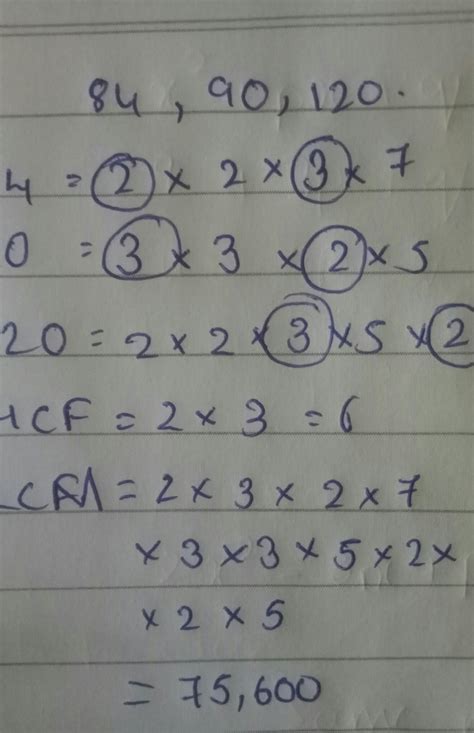 84, 90, 120.
4 = 2 × 2 × 3 × 7
0 = 3 × 3 × 2 × 5
20 = 2 × 2 × 3 × 5 × 2
HCF = 2 × 3 = 6
LCM = 2 × 3 × 2 × 7
× 3 × 3 × 5 × 2 ×
× 2 × 5
= 75,600